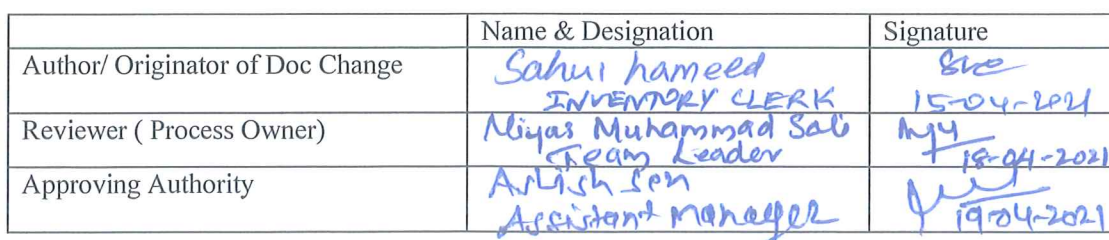 Name & Designation Signature
Author/ Originator of Doc Change Sahul hameed
INVENTORY CLERK 15-04-2021
Reviewer ( Process Owner) Niyas Muhammad Sali
Team Leader 18-04-2021
Approving Authority Ashish Sen
Assistant Manager 19-04-2021